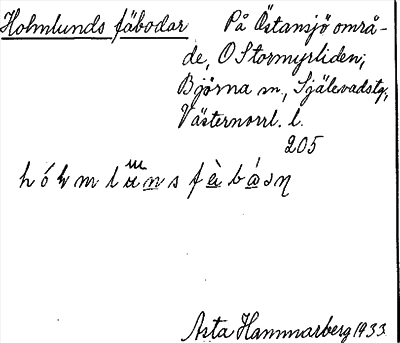 Holmlunds fäbodar På Östansjö områ-
de, O Stormyrliden;
Björna sn., Själevadstg.,
Västernorrl. l.
205
Asta Hammarberg 1933